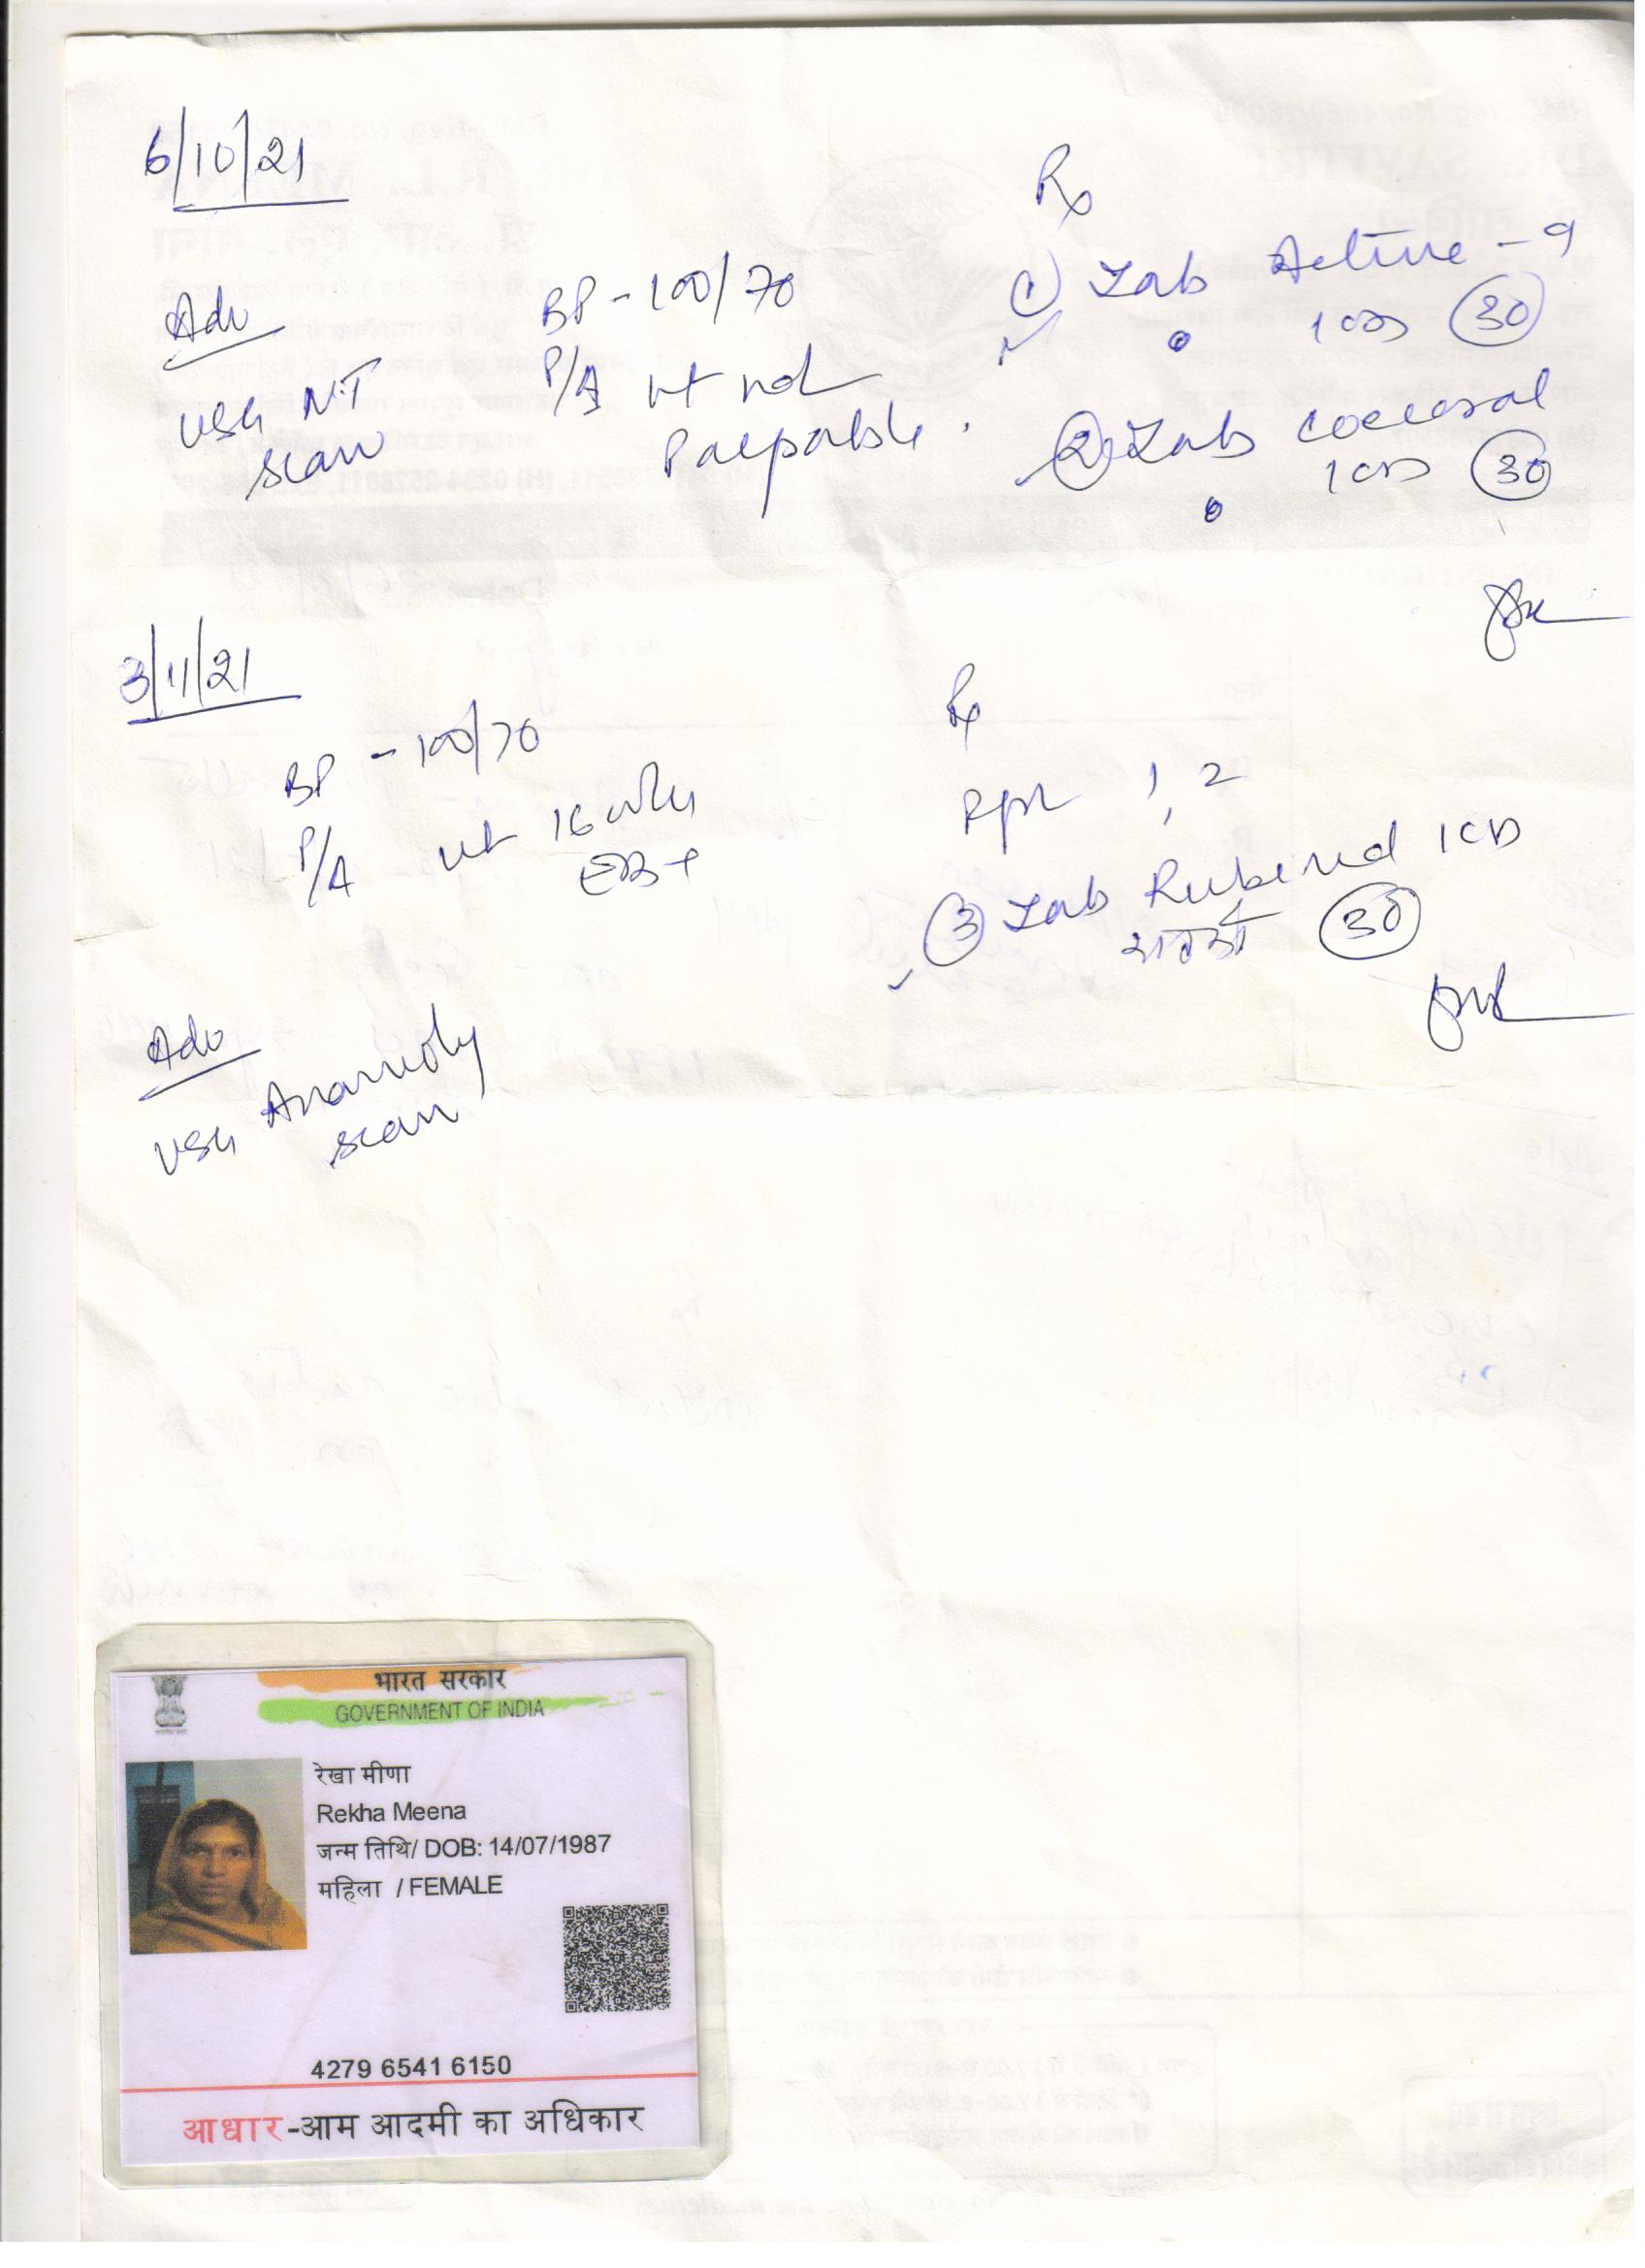 6/10/21
Adv
USG NT
scan
BP - 100/70
P/A ut not
Palpable.
Rx
1) Tab Active - 9
1 OD 30
2) Tab coccoral
1 OD 30
3/11/21
BP - 100/70
P/A ut 16 wks
Rx
Rpt 1, 2
3 Tab Rubired 1 OD
30
Adv
USG Anamoly
scan
भारत सरकार
GOVERNMENT OF INDIA
रेखा मीणा
Rekha Meena
जन्म तिथि/ DOB: 14/07/1987
महिला / FEMALE
4279 6541 6150
आधार-आम आदमी का अधिकार